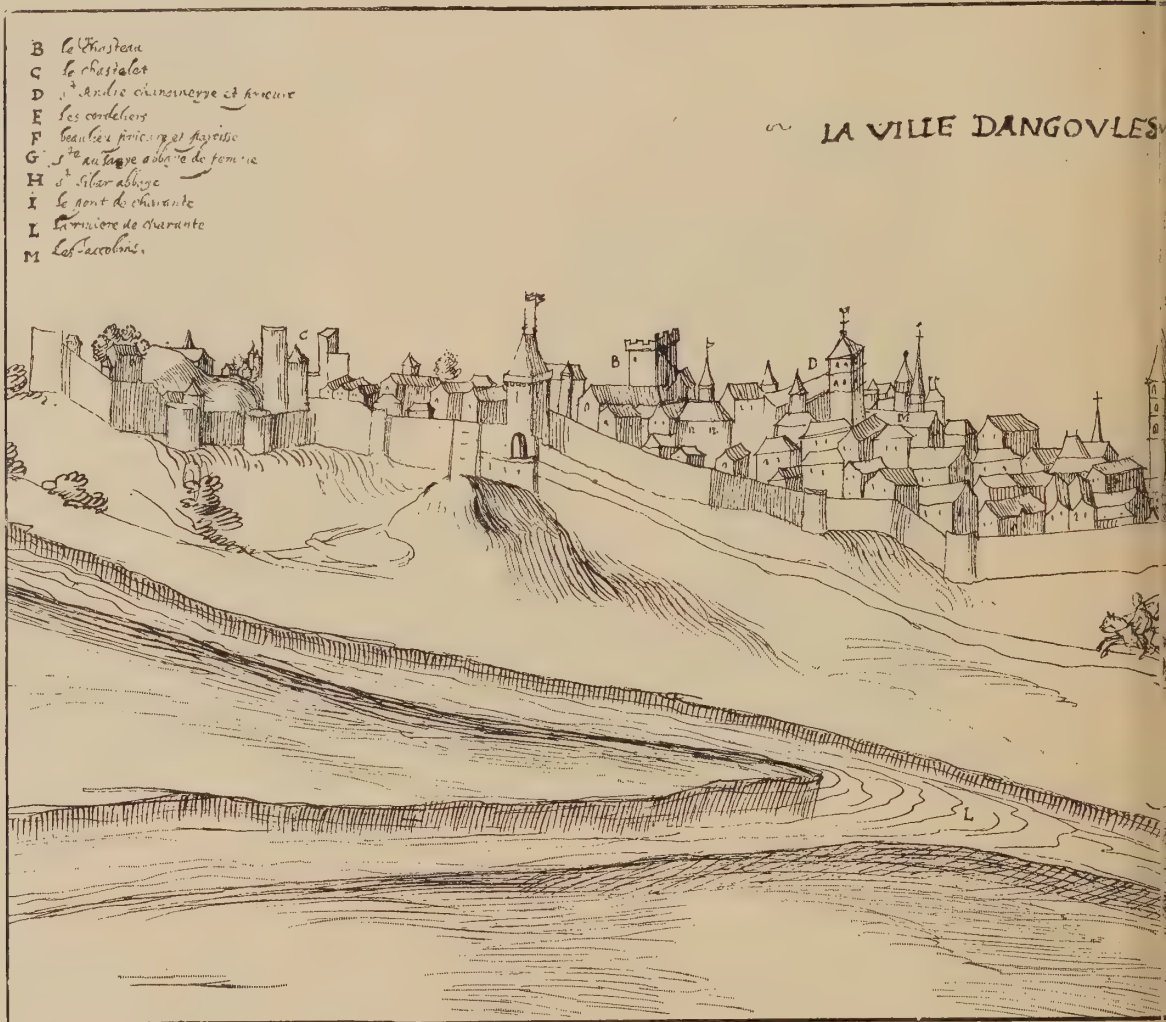 B le Chasteau
C le chastelet
D st Andre chanoinerye et prieure
E Les cordeliers
F beaulieu prieure et paroisse
G ste ausanye abbaye de femme
H st Sibar abbaye
I le pont de charante
L La riviere de charante
M Les Jaccobins.
LA VILLE DANGOVLES
C
B
D
M
L